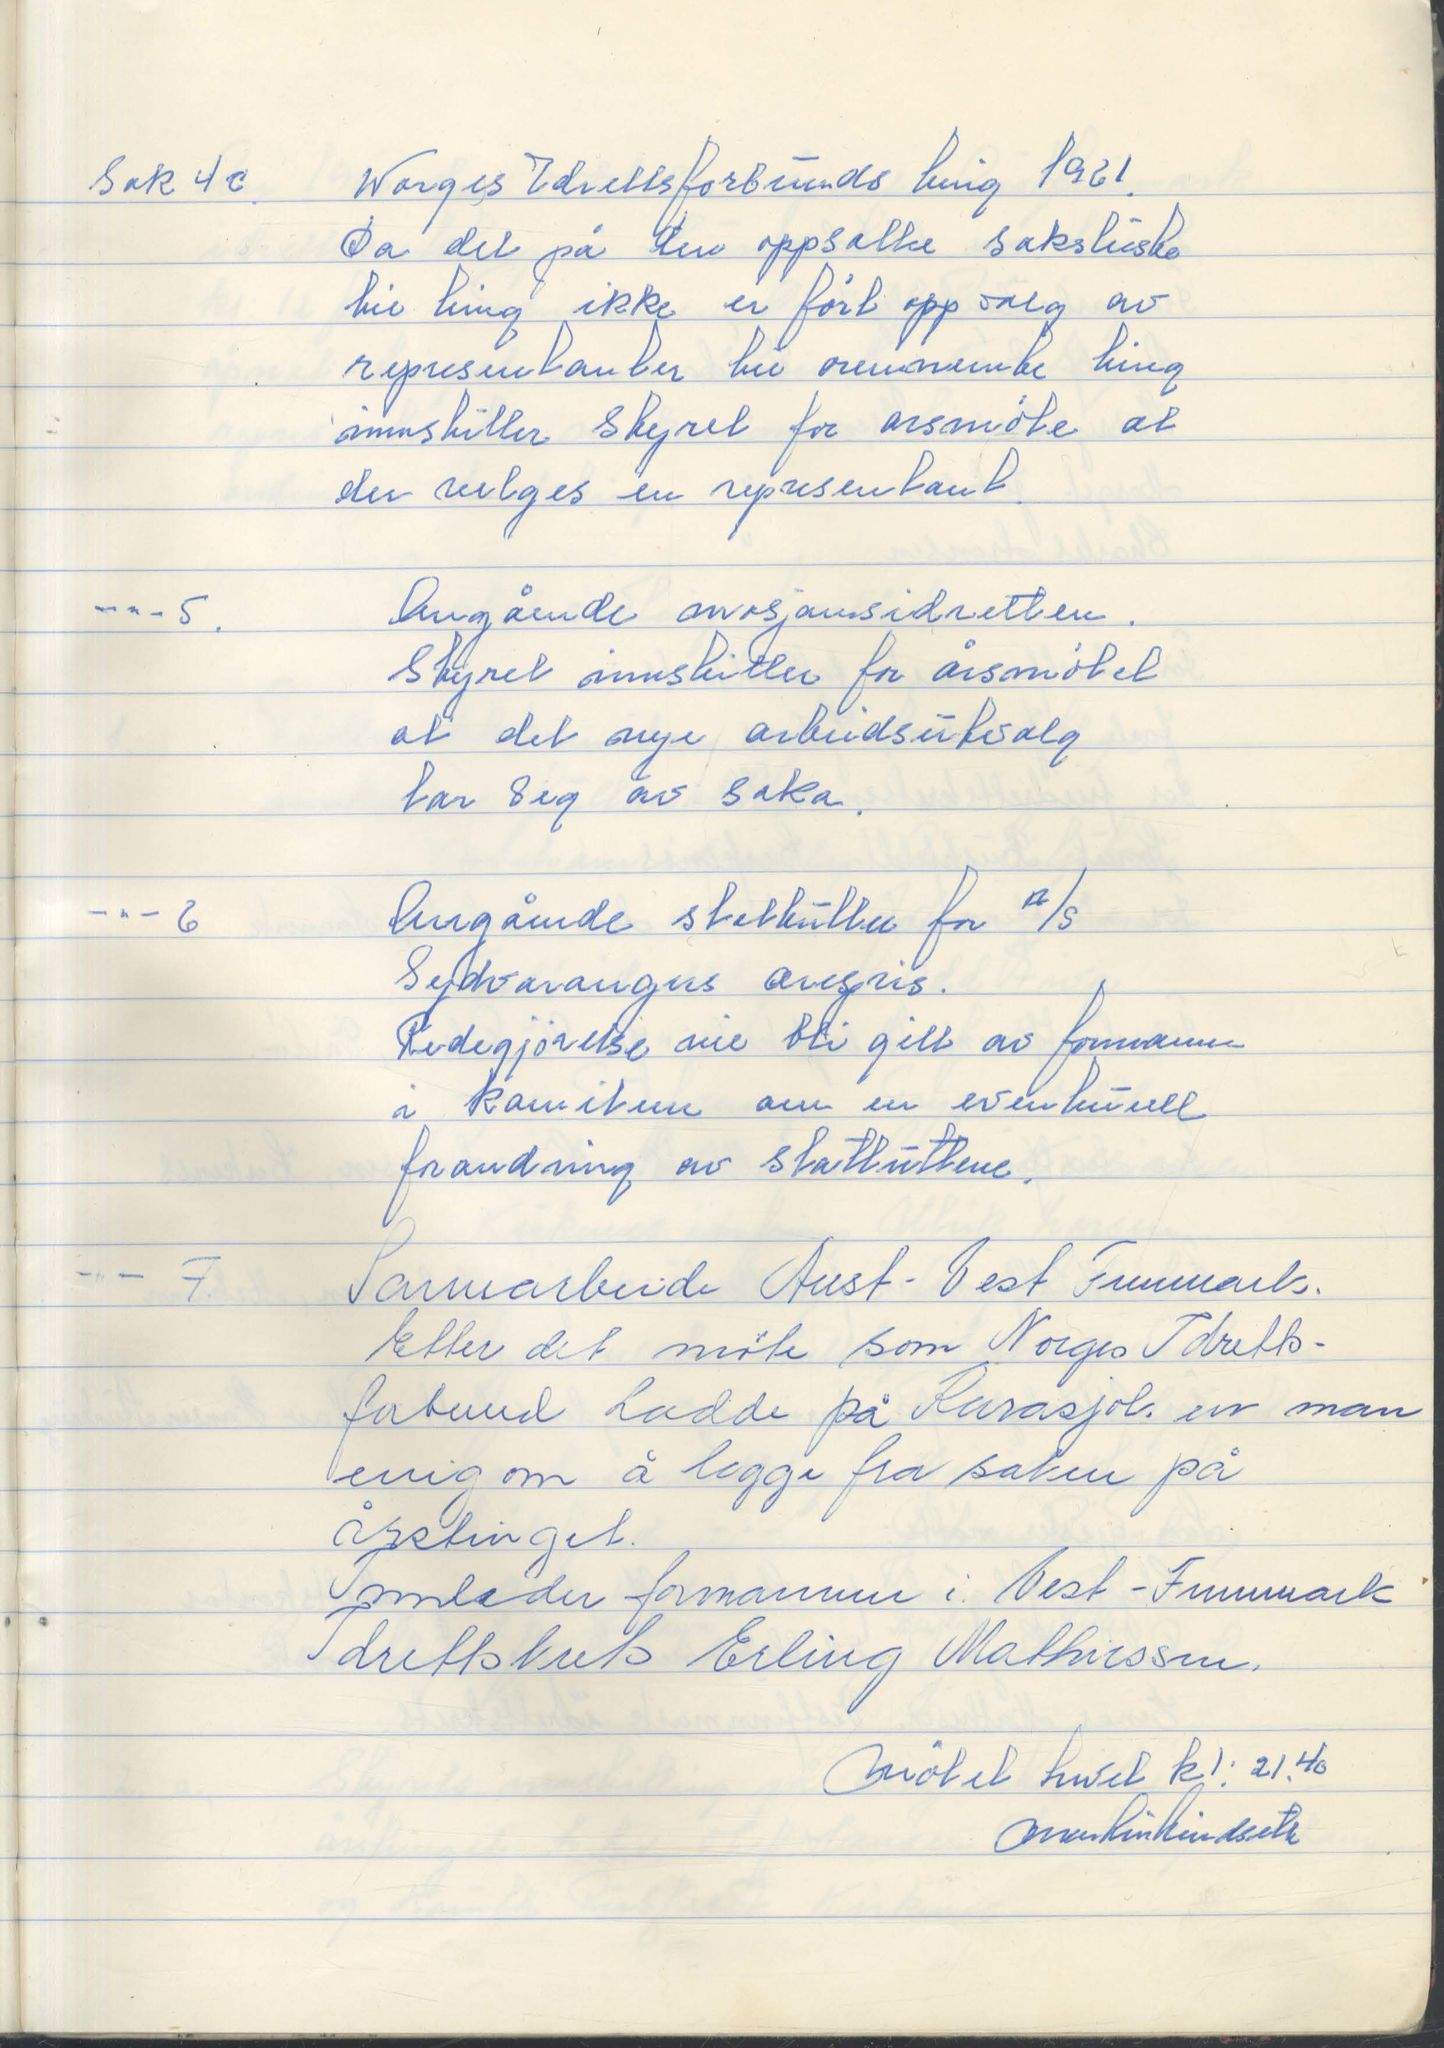 Sak 4c. Norges Idrettsforbunds ting 1961.
Da det på den oppsatte saksliste
til ting ikke er ført opp valg av
representanter til ovennemte ting
innstiller styret for årsmöte at
der velges en representant.
-"- 5. Angående mosjonsidretten.
Styret innstiller for årsmötet
at det nye arbeidsutvalg
tar seg av saka.
-"- 6 Angående statutter for A/S
Sydvarangers ærespris.
Redegjörelse vil bli gitt av formann
i komiteen om en eventuell
forandring av statuttene.
-"- 7. Samarbeide Aust-Vest Finnmark.
Etter det möte som Norges Idretts-
forbund hadde på Karasjok. er man
enig om å legge fra saken på
årstinget.
Innleder formannen i Vest-Finnmark
Idrettskrets Erling Mathiessen.
Mötet hevet kl: 21.40